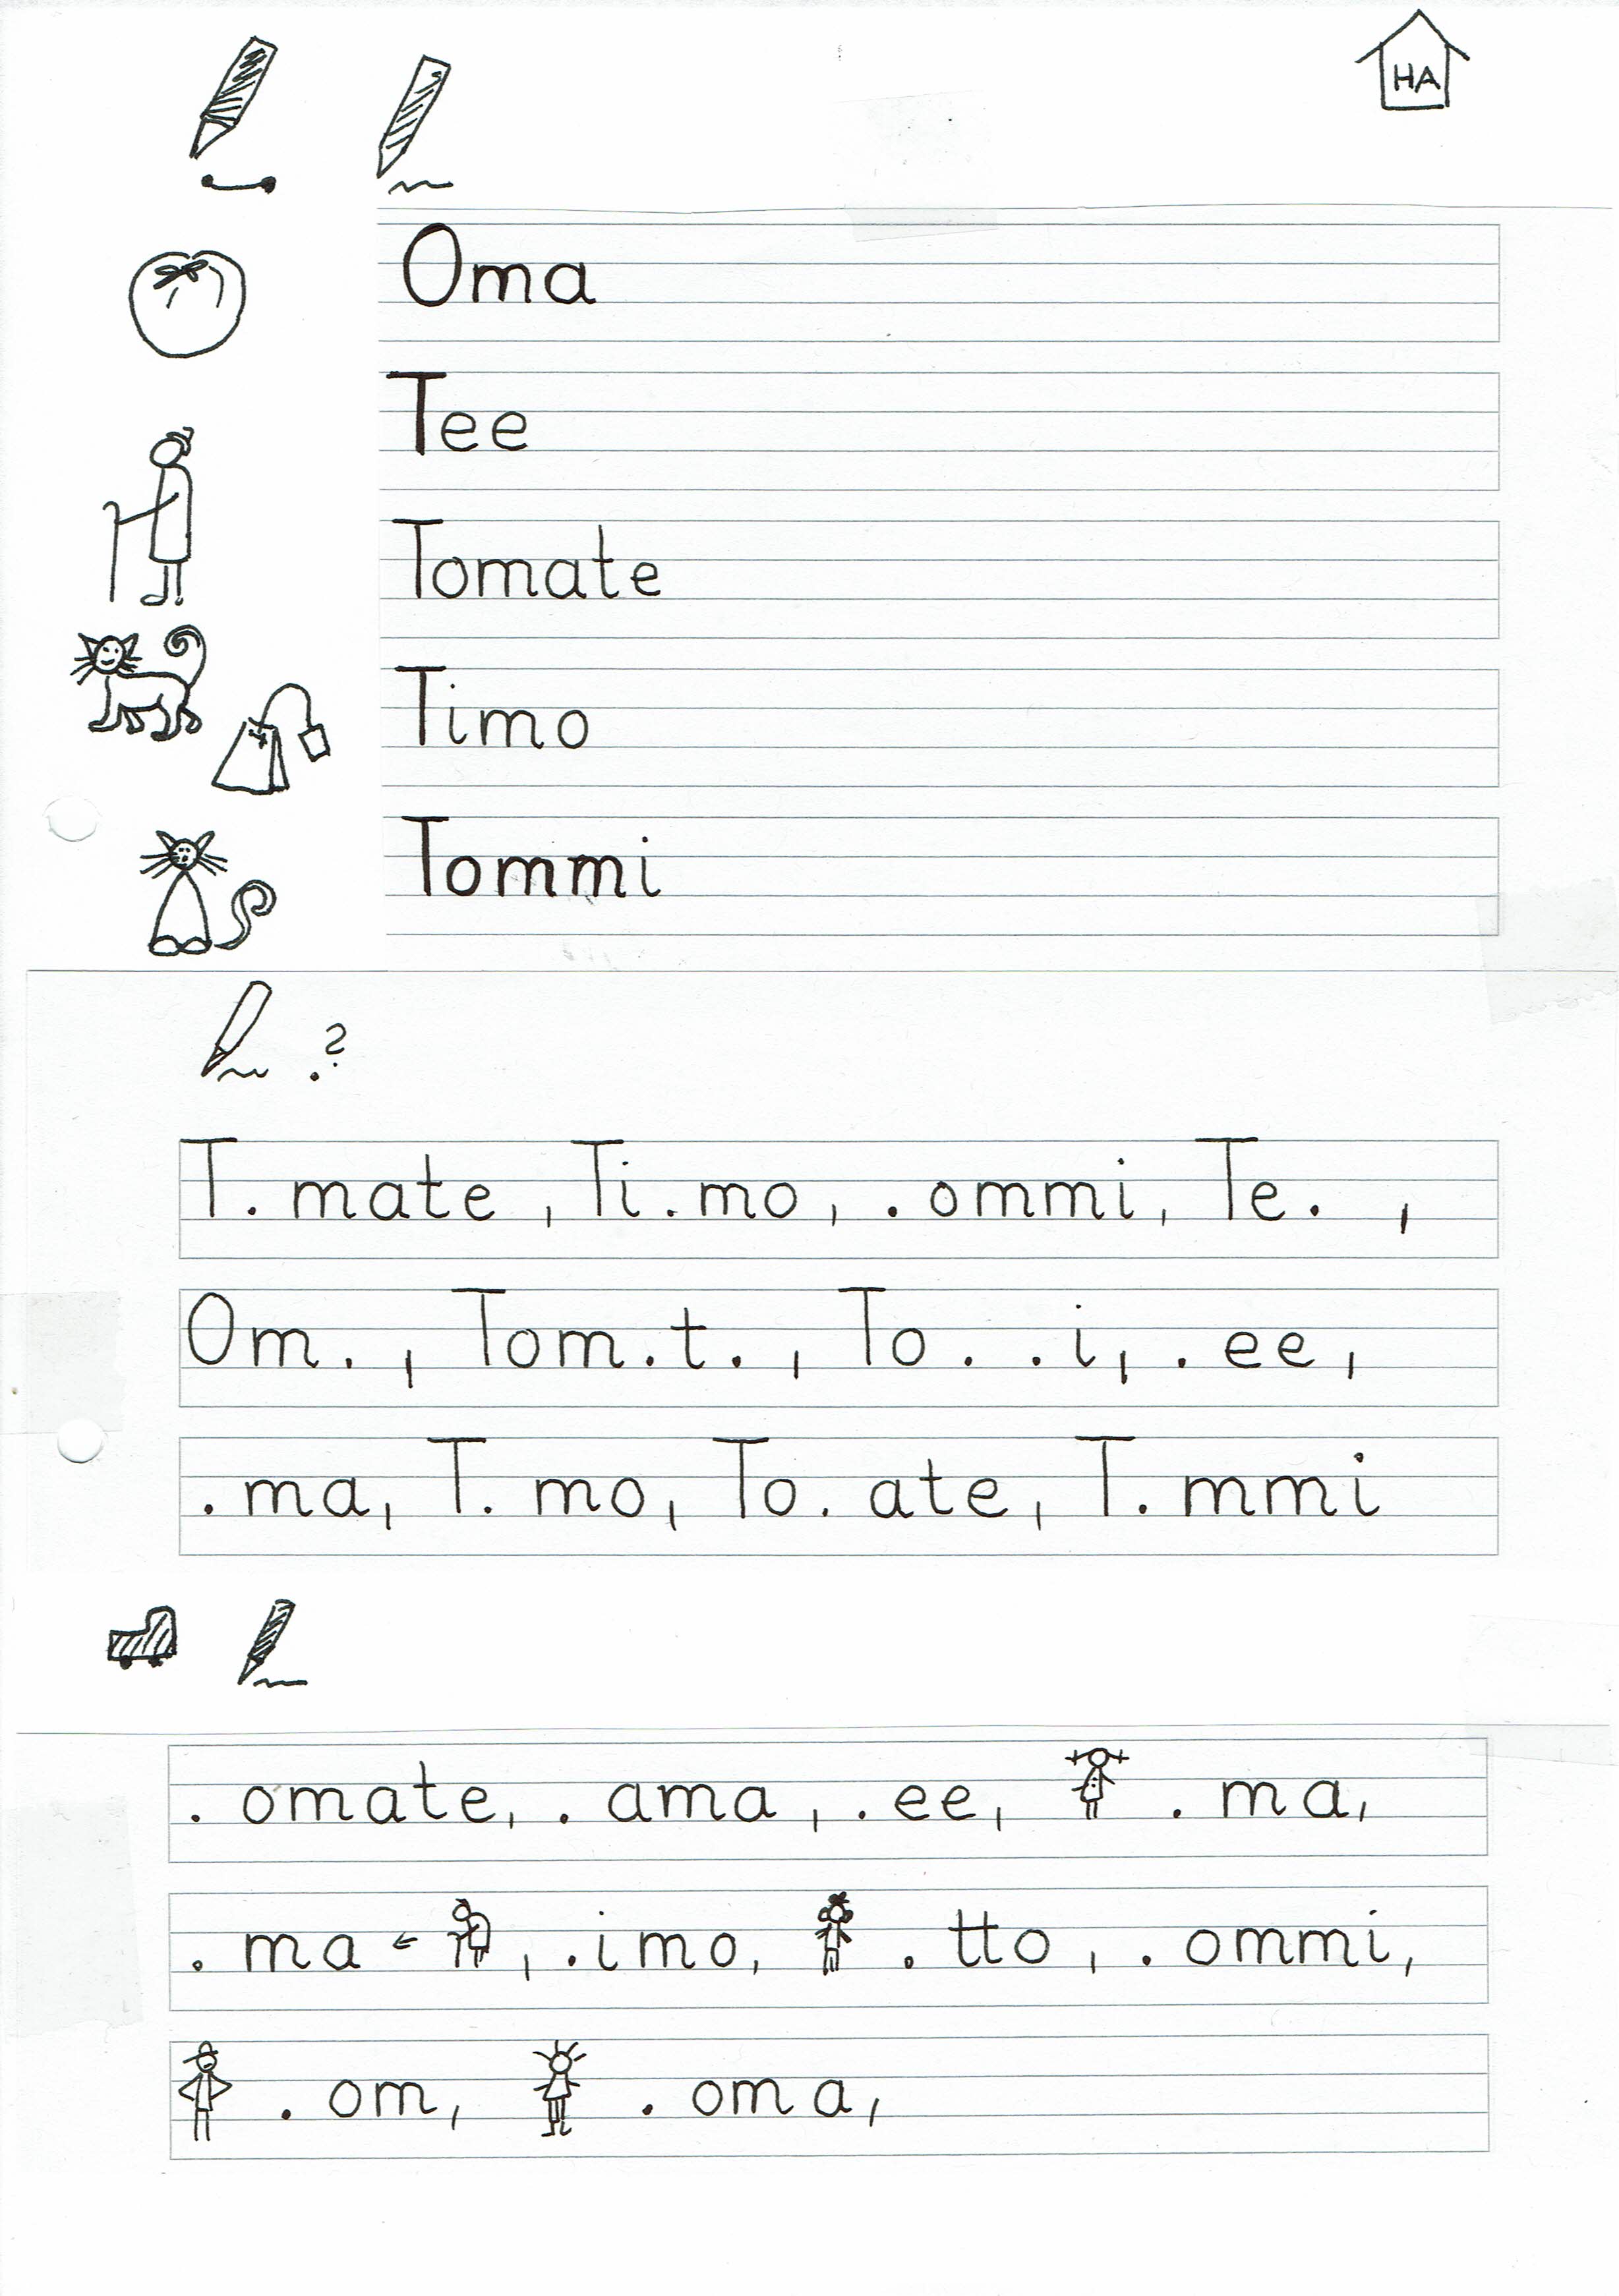 HA
Oma
Tee
Tomate
Timo
Tommi
. ?
T. mate , Ti.mo, . ommi, Te. ,
Om. , Tom.t. , To . . i, . ee,
. ma, T. mo, To. ate, T. mmi
. omate, . ama , . ee, . ma,
. ma ← , .imo, . tto , . ommi,
. om, . oma,